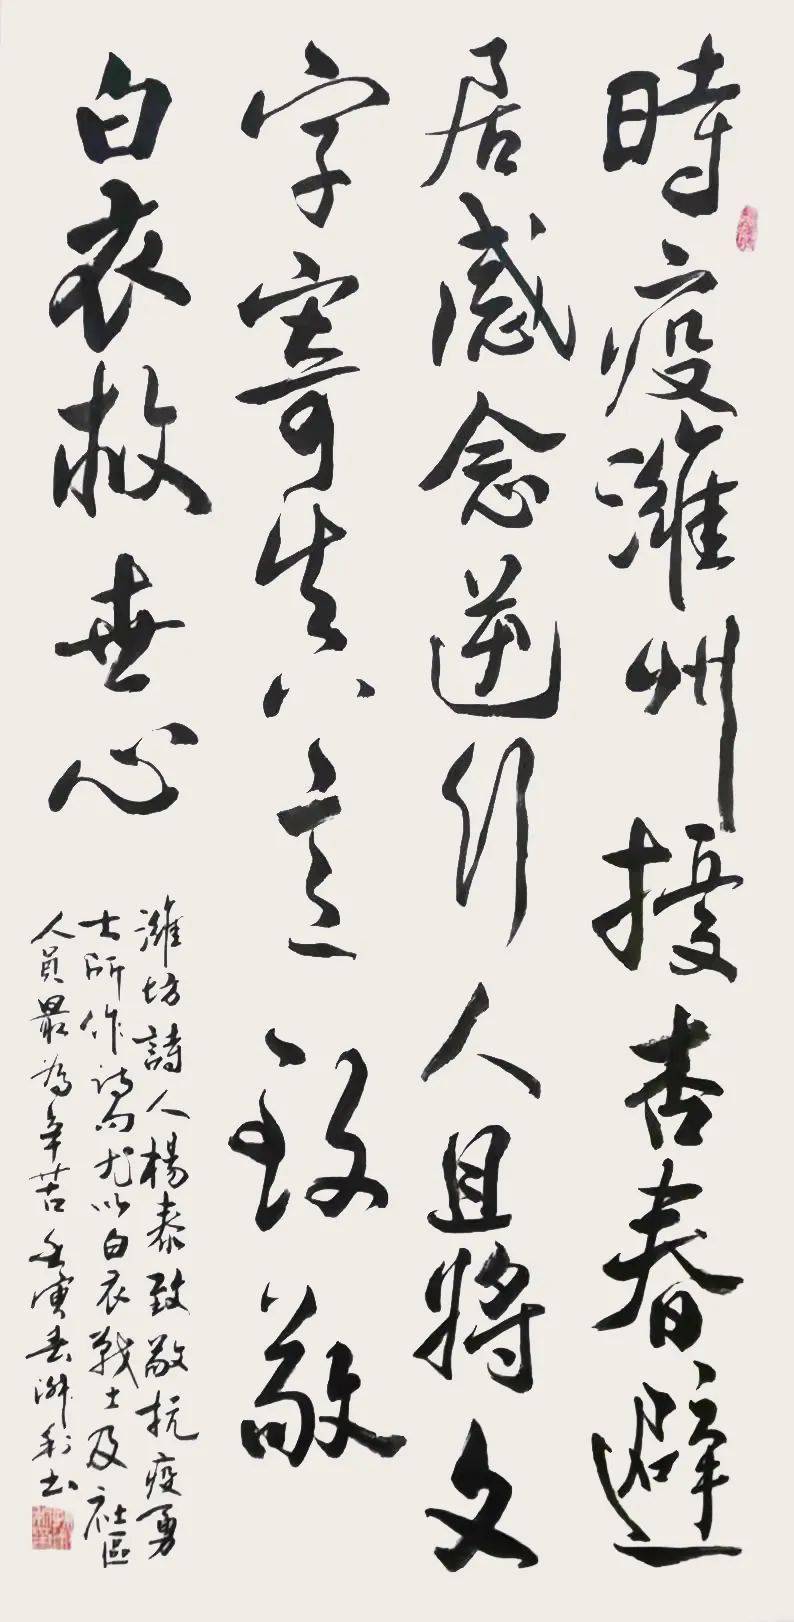 時疫濰州擾杏春避
居感念逆行人且將文
字寄真意致敬
白衣救世心
濰坊詩人楊泰致敬抗疫勇
士所作诗句尤以白衣戰士及社區
人員最為辛苦壬寅春洲利书